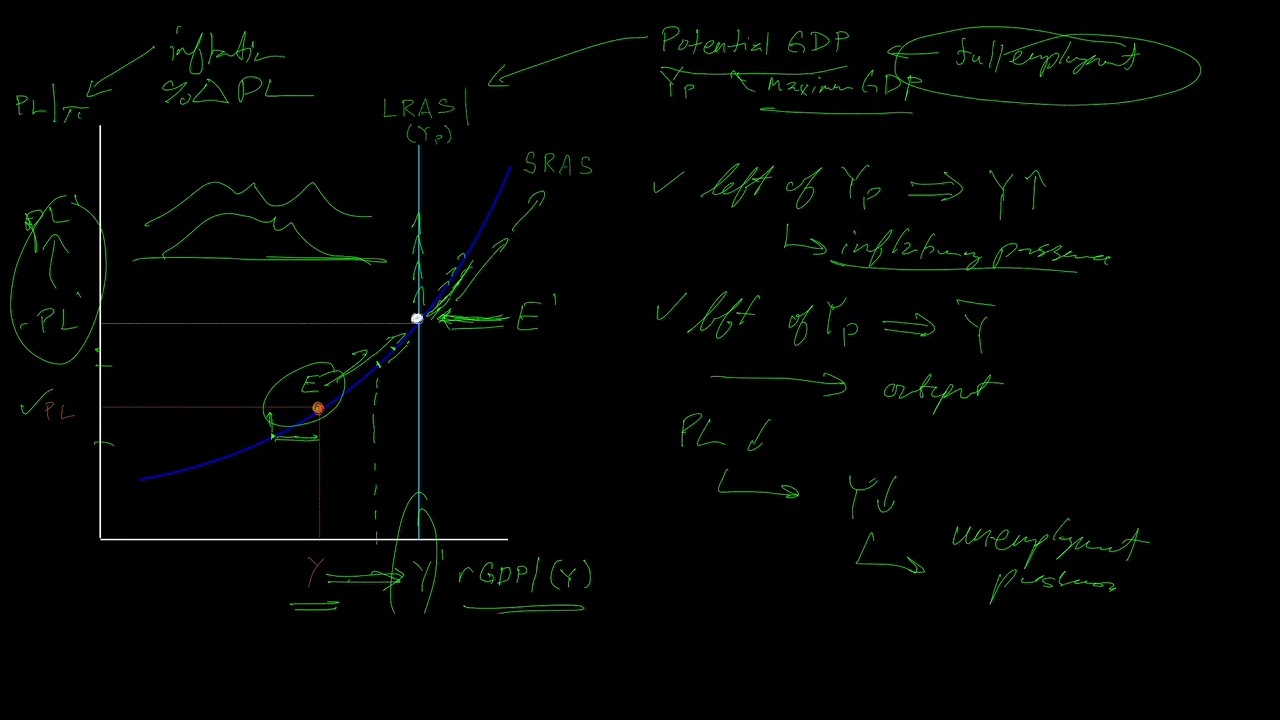 inflation
%Δ PL
PL|π
LRAS|
(Yp)
SRAS
Potential GDP
full employment
Yp
Maximum GDP
✓ left of Yp ⇒ Y↑
↳ inflationary pressure
✓ left of Yp ⇒ Y
→ output
PL ↓
↳ Y↓
↳ unemployment
pressure
PL'
PL'
✓PL
E'
E
Y ⇒ Y' rGDP|(Y)